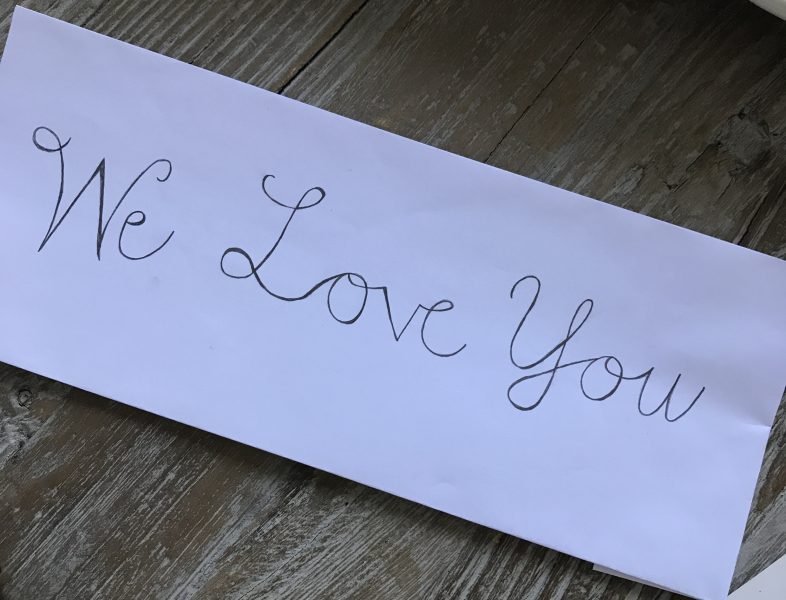 We Love You